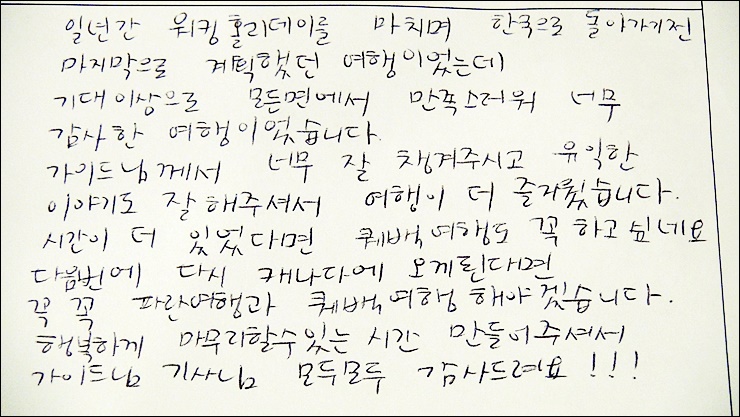 일년간 워킹홀리데이를 마치며 한국으로 돌아가기전
마지막으로 계획했던 여행이었는데
기대이상으로 모든면에서 만족스러워 너무
감사한 여행이었습니다.
가이드님께서 너무 잘 챙겨주시고 유익한
이야기도 잘해주셔서 여행이 더 즐거웠습니다.
시간이 더 있었다면 퀘백여행도 꼭 하고싶네요
다음번에 다시 캐나다에 오게된다면
꼭 꼭 파란여행과 퀘백여행 해야겠습니다.
행복하게 마무리할수있는 시간 만들어주셔서
가이드님 기사님 모두모두 감사드려요!!!